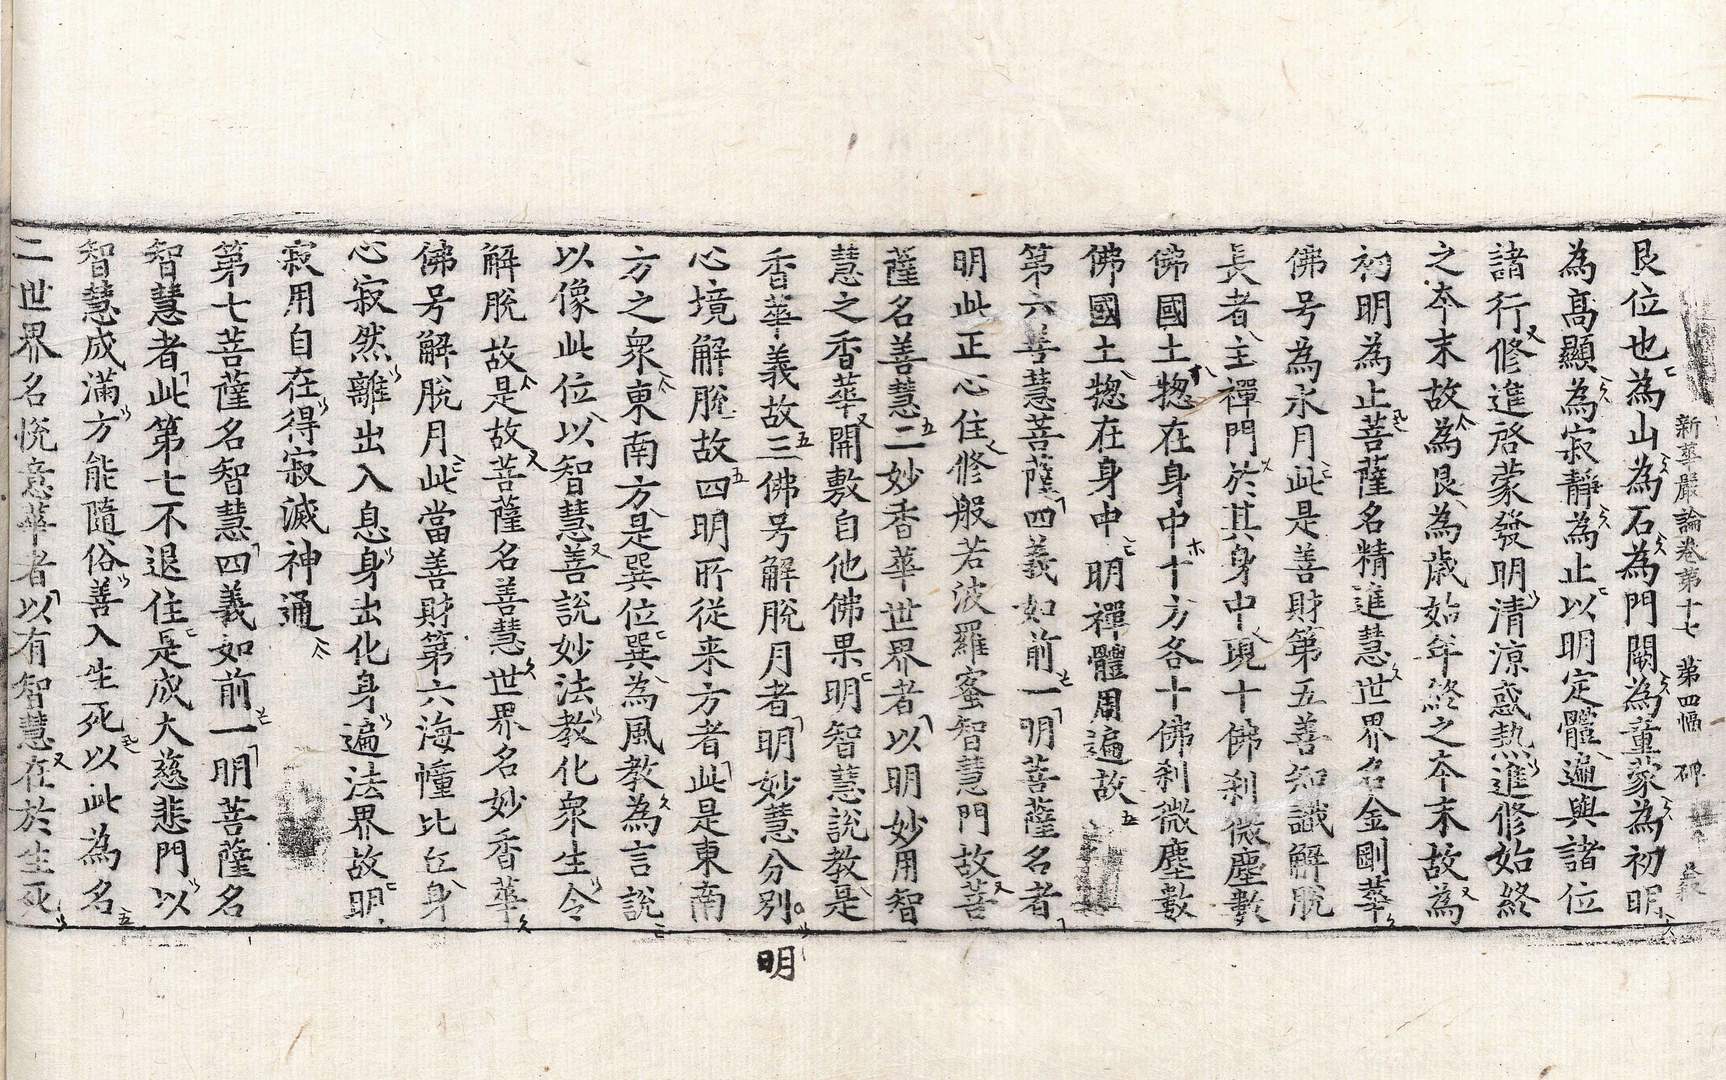 新華嚴論卷第十七 第四幅 碑
艮位也為山為石為門闕為童蒙為初明
為高顯為寂靜為止以明定體遍與諸位
諸行修進啓蒙發明清涼惑熱進修始終
之夲末故為艮為歲始年終之夲末故為
初明為止菩薩名精進慧世界名金剛華
佛号為永月此是善財第五善知識解脫
長者主禪門於其身中現十佛刹微塵數
佛國土揔在身中十方各十佛刹微塵數
佛國土揔在身中明禪體周遍故
第六善慧菩薩四義如前一明菩薩名者
明此正心住修般若波羅蜜智慧門故菩
薩名善慧二妙香華世界者以明妙用智
慧之香華開敷自他佛果明智慧說教是
香華義故三佛号解脫月者明妙慧分别
明
心境解脫故四明所從来方者此是東南
方之衆東南方是巽位巽為風教為言說
以像此位以智慧善說妙法教化衆生令
解脫故是故菩薩名善慧世界名妙香華
佛号解脫月此當善財第六海幢比丘身
心寂然離出入息身出化身遍法界故明
寂用自在得寂滅神通
第七菩薩名智慧四義如前一明菩薩名
智慧者此第七不退住是成大慈悲門以
智慧成滿方能隨俗善入生死以此為名
二世界名悅意華者以有智慧在於生死